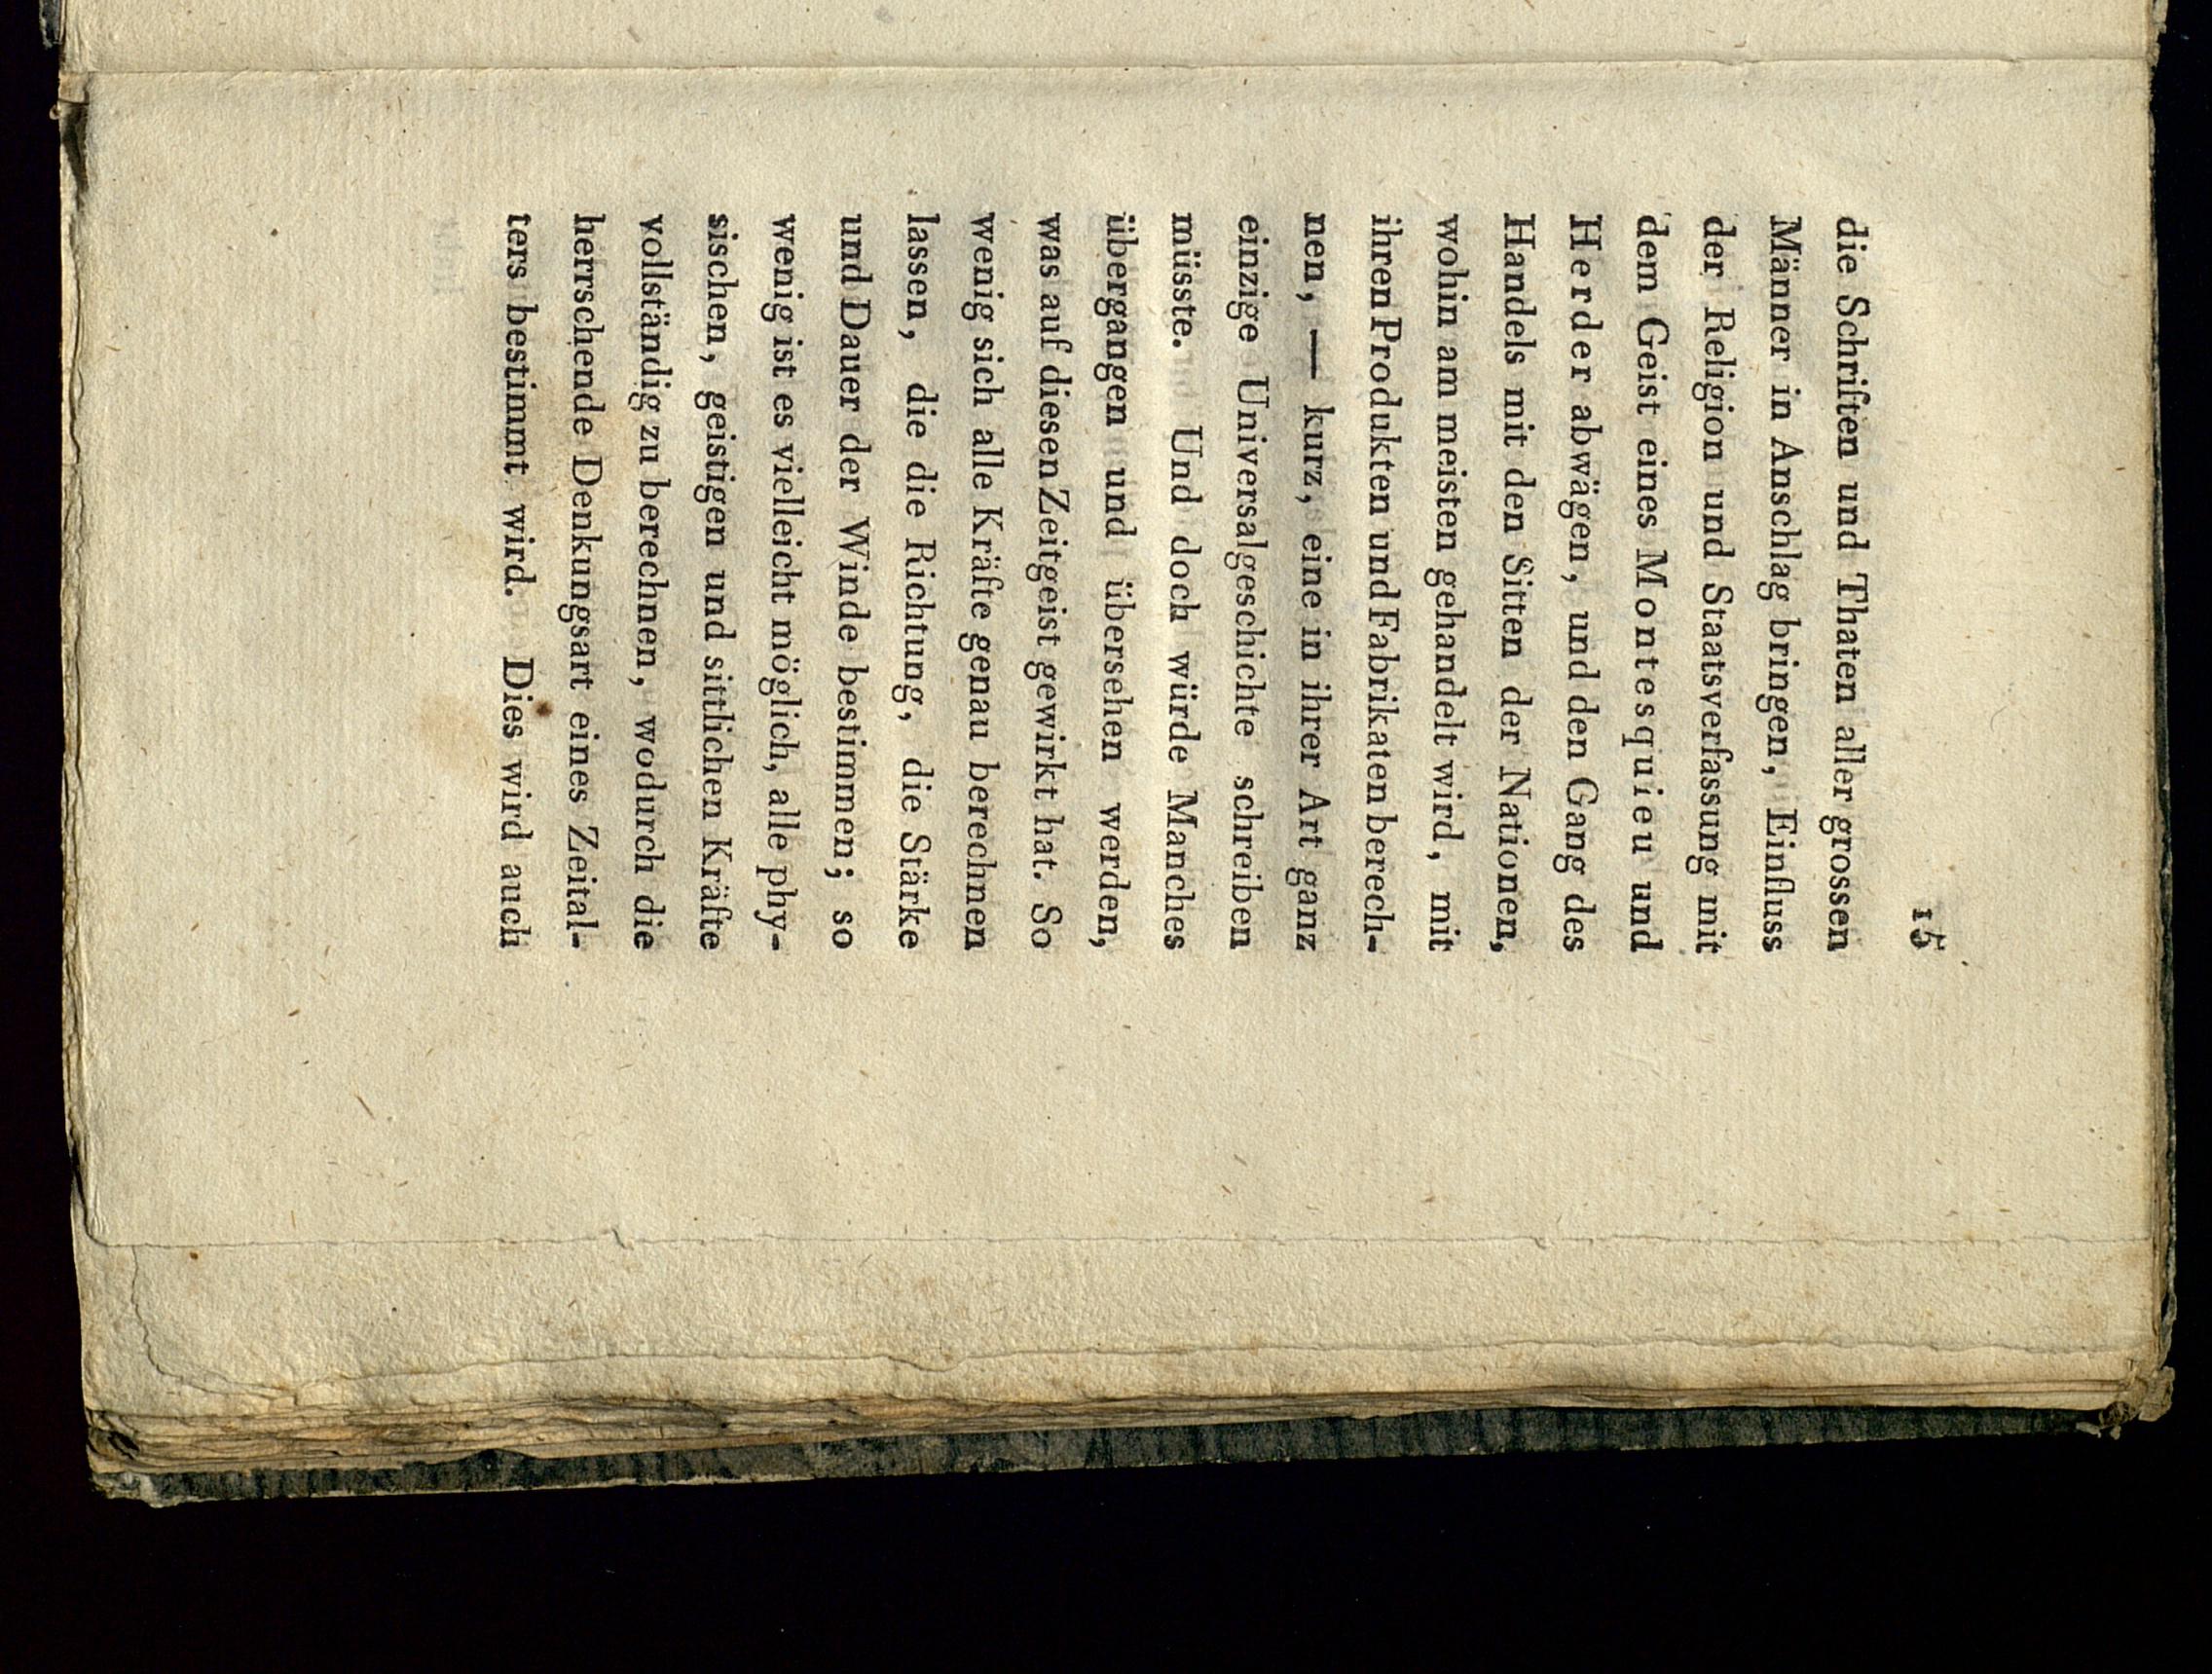 15
die Schriften und Thaten aller grossen
Männer in Anschlag bringen, Einfluss
der Religion und Staatsverfassung mit
dem Geist eines Montesquieu und
Herder abwägen, und den Gang des
Handels mit den Sitten der Nationen,
wohin am meisten gehandelt wird, mit
ihren Produkten und Fabrikaten berech-
nen, — kurz, eine in ihrer Art ganz
einzige Universalgeschichte schreiben
müsste. Und doch würde Manches
übergangen und übersehen werden,
was auf diesen Zeitgeist gewirkt hat. So
wenig sich alle Kräfte genau berechnen
lassen, die die Richtung, die Stärke
und Dauer der Winde bestimmen; so
wenig ist es vielleicht möglich, alle phy-
sischen, geistigen und sittlichen Kräfte
vollständig zu berechnen, wodurch die
herrschende Denkungsart eines Zeital-
ters bestimmt wird. Dies wird auch